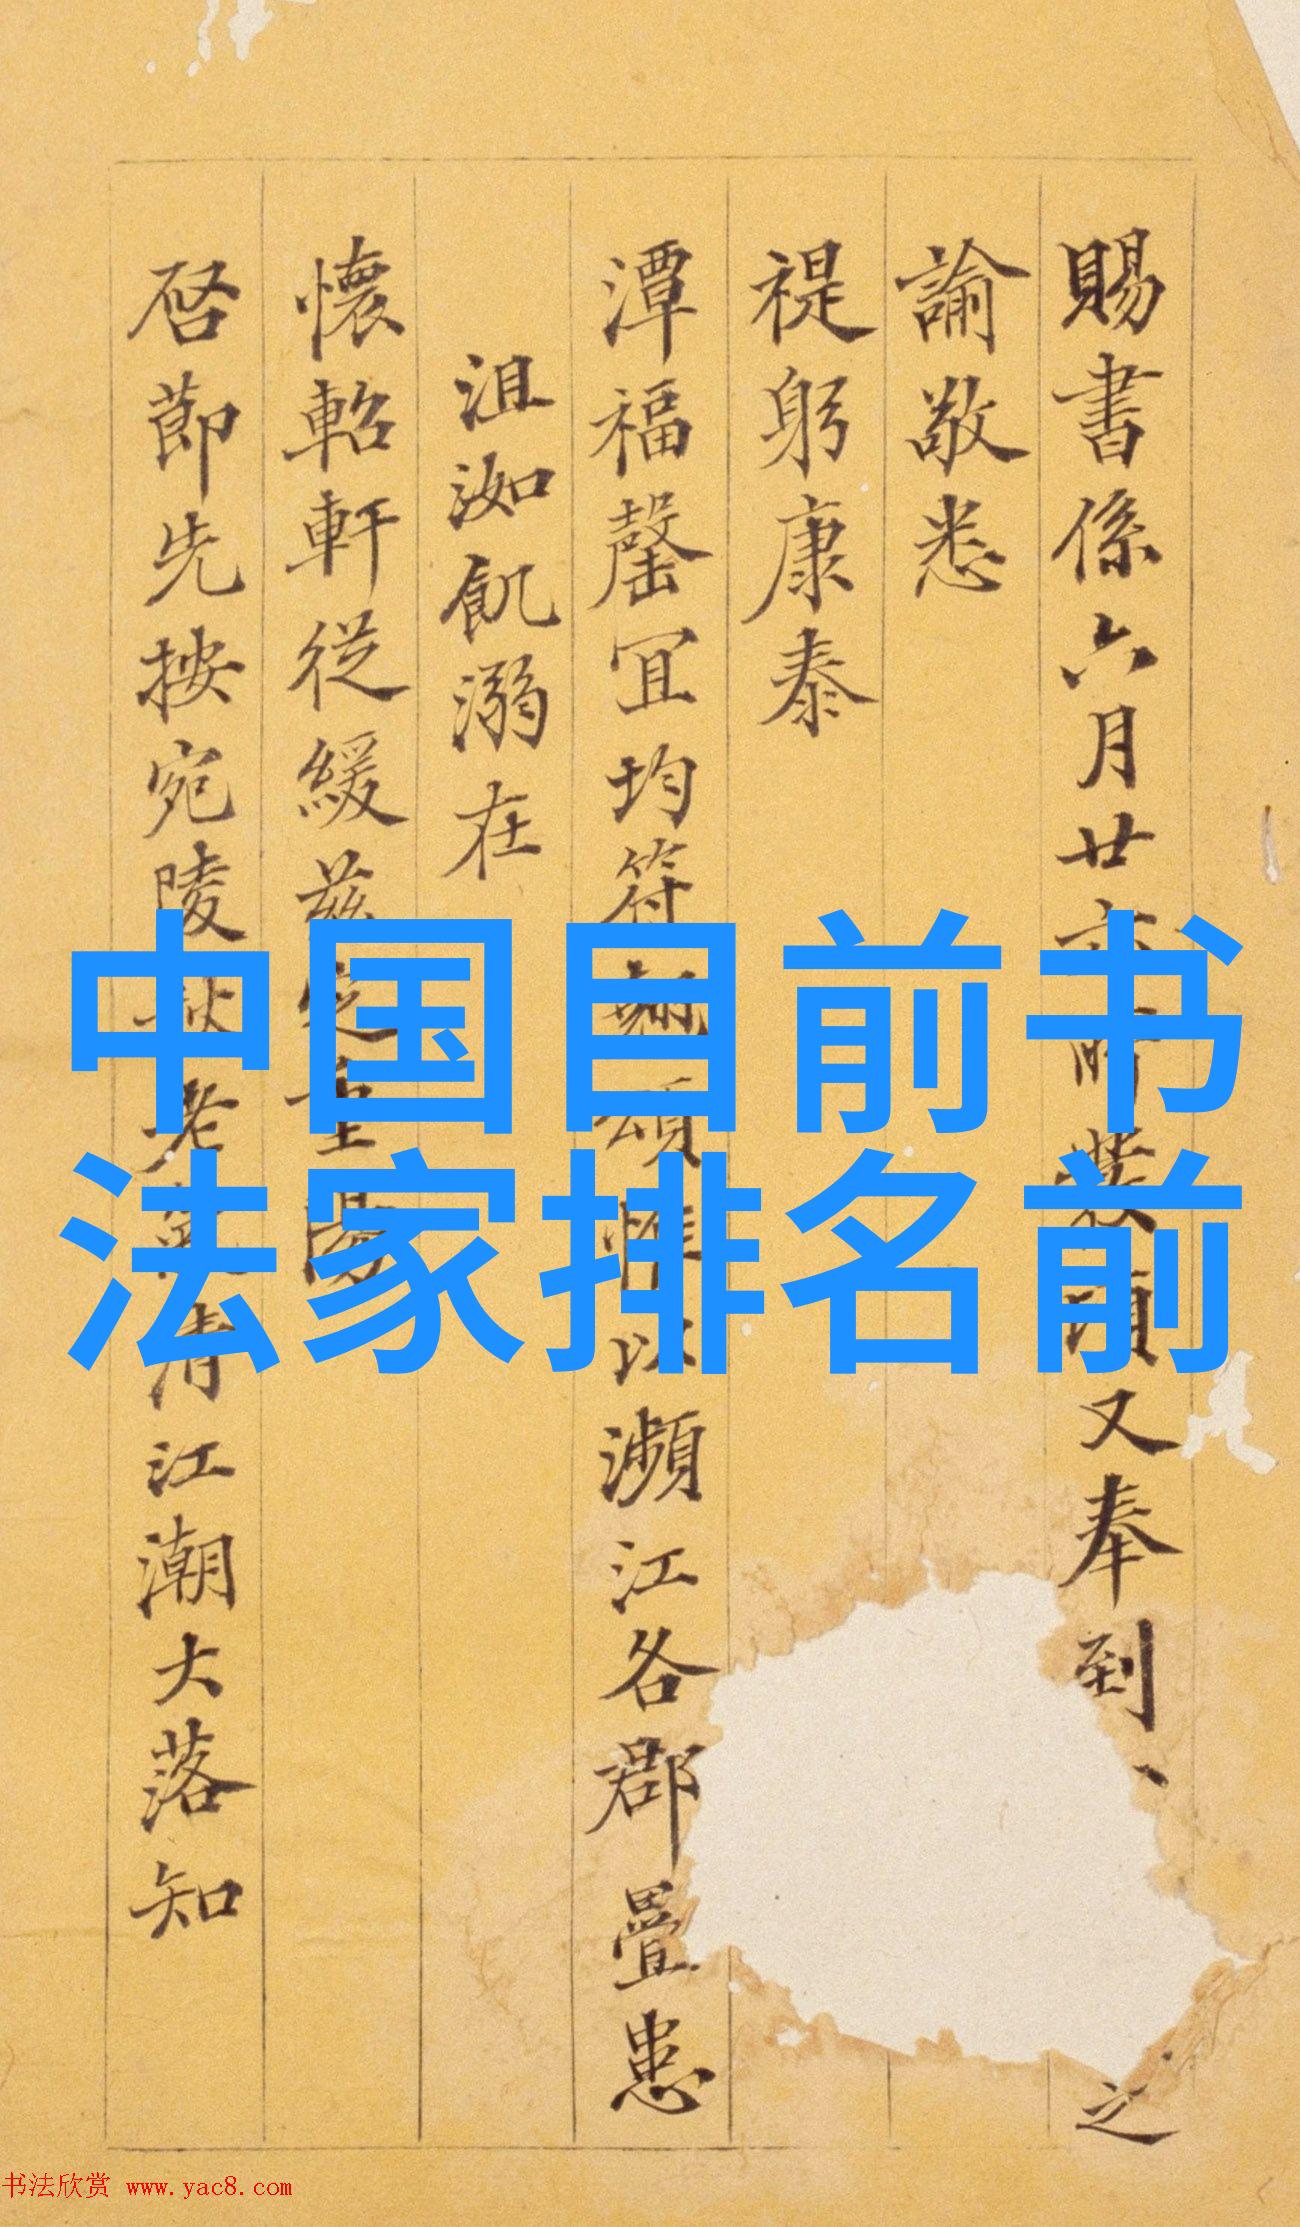 中国目前书
法家排名前
賜書係六月廿
又奉到、
之
諭敬悉
禔躬康泰
潭福罄宜均符
頌惟以瀕江各郡疊患
沮洳飢溺在
懷軺軒從緩茲
啓節先按宛陵
老
清江潮大落知
书法欣赏 www.yac8.com